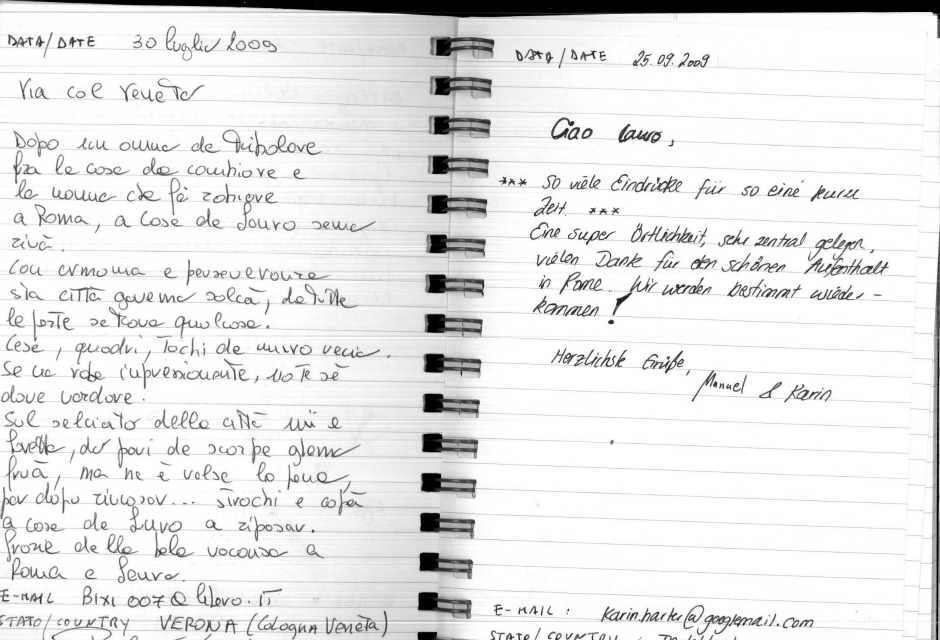 DATA/DATE 30 luglio 2009
Via col Veneto
Dopo un anno de
fra le cose da cambiare e
la nonna che fà
a Roma, a Casa de Lauro semo
rivà.
Con armonia e perseveranza
sta città gavemo solcà, da tute
le parte se trova qualcosa.
Cese, quadri, tochi de muro vecio.
Se na roba impresionante, no te sè
dove vardare.
Sul selciato della città mi e
, du pari de scarpe ghemo
fruà, ma ne è valse la pena,
par dopo ... strachi e
a casa de Lauro a riposar.
Grazie della bela vacansa a
Roma e Lauro.
E-MAIL BIXI 007@libero.IT
STATO/COUNTRY VERONA (Cologna Veneta)
DATA/DATE 25.09.2009
Ciao Lauro,
*** So viele Eindrücke für so eine kurze
Zeit. ***
Eine super Örtlichkeit, sehr zentral gelegen,
vielen Dank für den schönen Aufenthalt
in Rome. Wir werden bestimmt wieder-
kommen!
Herzlichste Grüße,
Manuel & Karin
E-MAIL: @googlemail.com
STATO/COUNTRY: